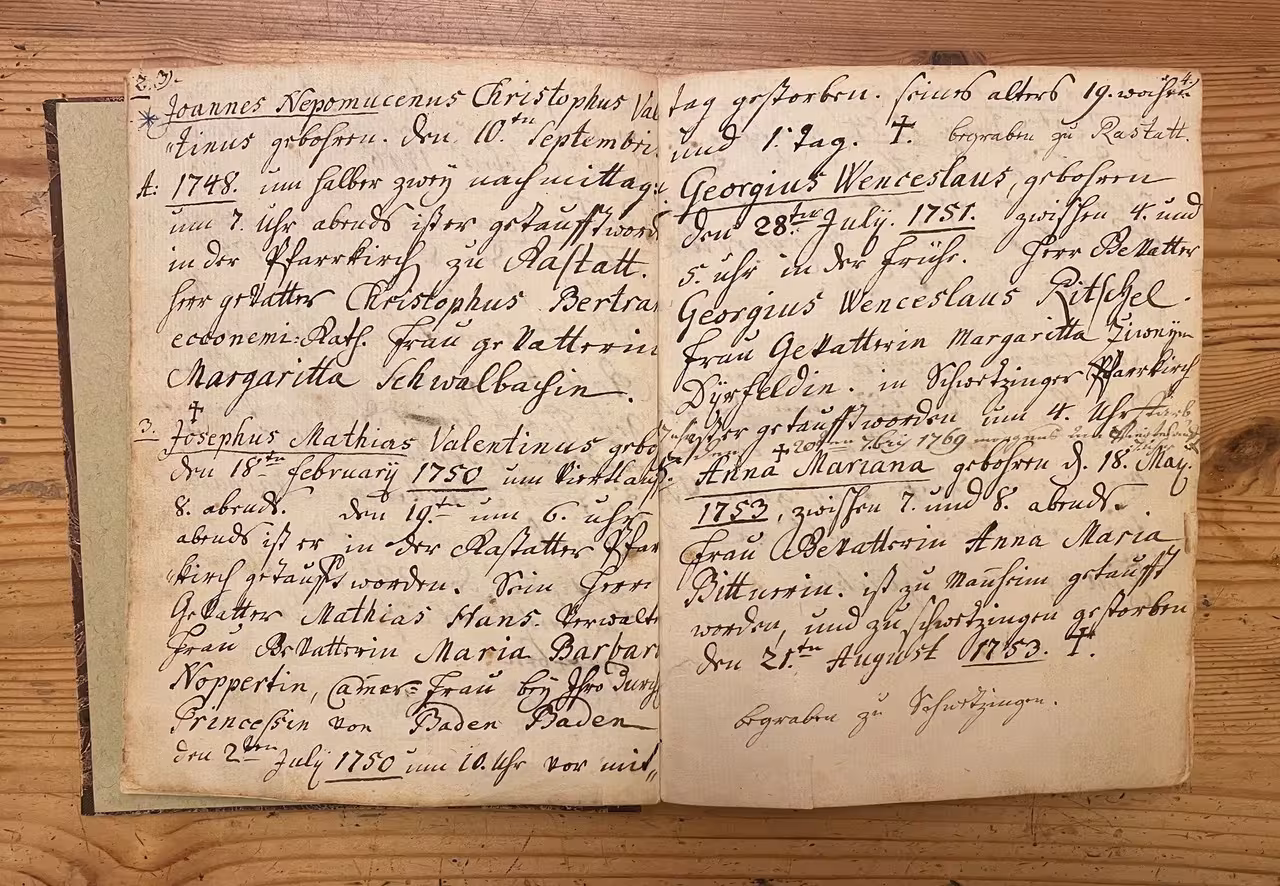 2. 3).
Joannes Nepomucenus Christophus Val
tinus gebohren. den 10.ten Septembri
A: 1748. um halber zwey nachmittag:
um 7. uhr abends ist er getaufft word
in der Pfarrkirch zu Rastatt.
Herr gevatter Christophus Bertra
economi:-Rath. Frau gevatterin
Margaritta Schwalbachin.
†
3. Josephus Mathias Valentinus gebo
den 18ten february 1750 um viertlauf
8. abends. den 19.ten um 6. uhr
abends ist er in der Rastatter Pfar
kirch getaufft worden. Sein Herr
Gevatter Mathias Hans. Verwalt
Frau Gevatterin Maria Barbar
Noppertin, Camer-Frau bey Ihro Durch
Princessin von Baden Baden
den 2ten July 1750 um 10. Uhr vor mit„
4.
tag gestorben. seines alters 19. wochen
und 1. tag. †. begraben zu Rastatt.
Georgius Wenceslaus, gebohren
den 28ten July. 1751. zwischen 4. und
5. uhr in der frühe. Herr Gevatter
Georgius Wenceslaus Ritschel.
Frau Gevatterin Margaritta
Dyrfeldin. in Schwetzinger Pfarrkirch
ist er getaufft worden um 4. Uhr starb
† 20ten 7bris 1769 morgens um
Anna Mariana gebohren d. 18. May.
1753, zwischen 7. und 8. abends.
Frau Gevatterin Anna Maria
Bittnerin. ist zu Manheim getaufft
worden, und zu schwetzingen gestorben
den 21.ten August 1753. †.
begraben zu Schwetzingen.